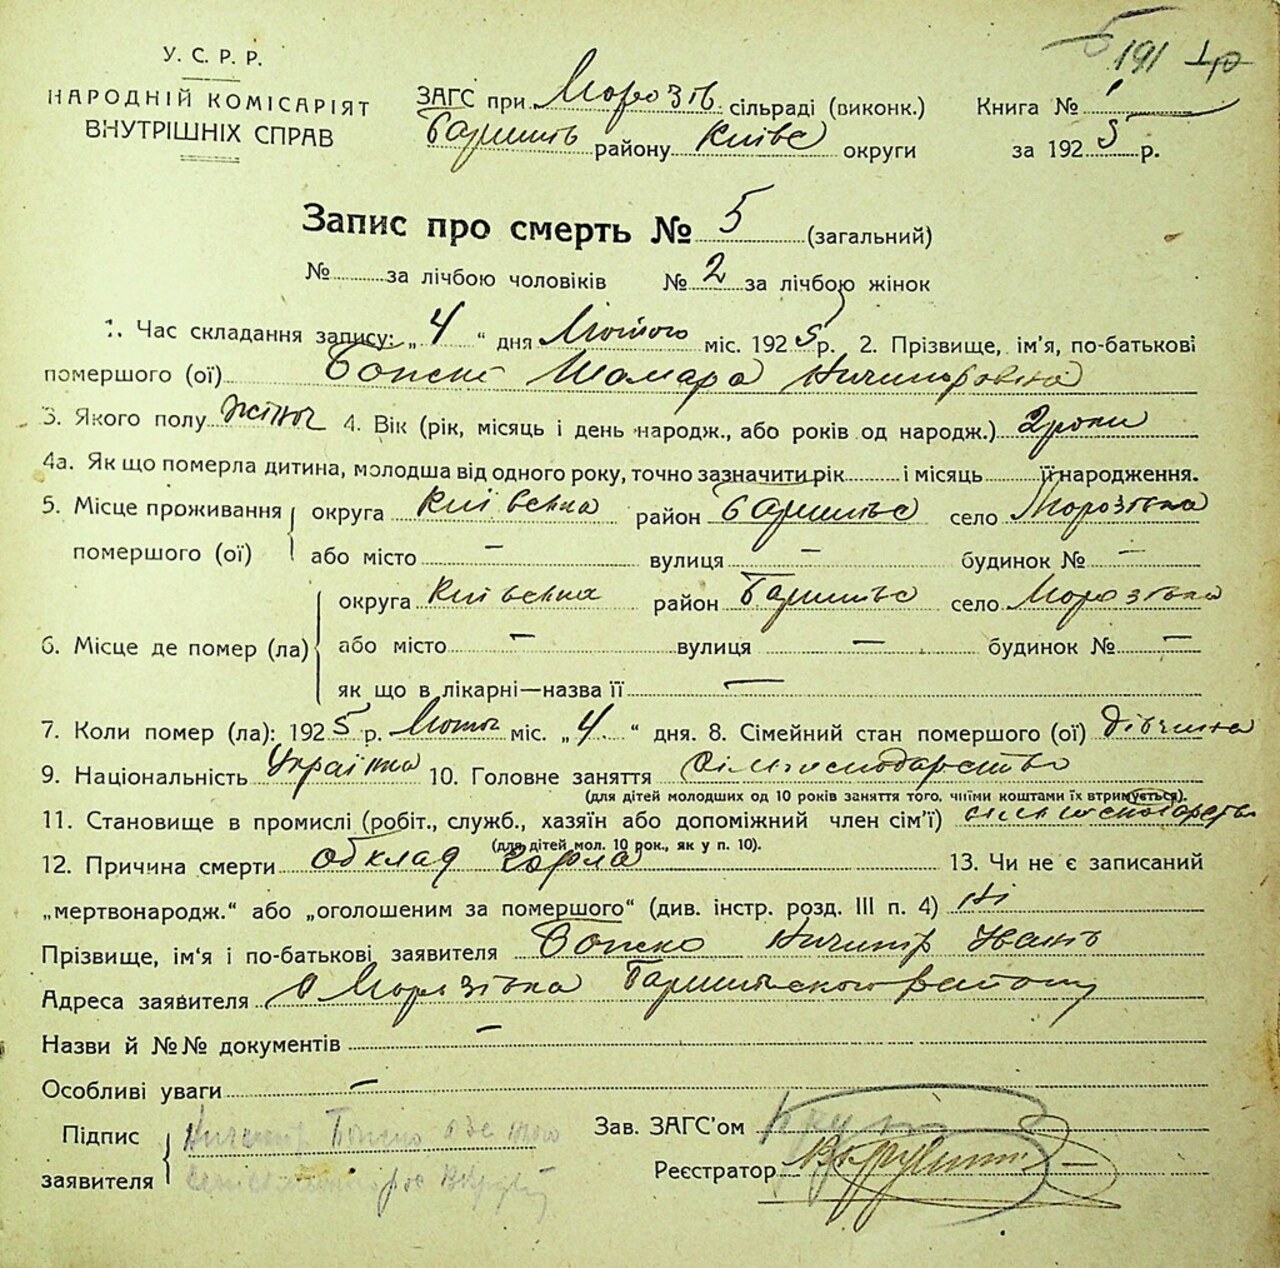 У. С. Р. Р.
НАРОДНІЙ КОМІСАРІЯТ
ВНУТРІШНІХ СПРАВ
ЗАГС при Морозів. сільраді (виконк.)
Баришів району Київс округи
191
Книга №
за 1925 р.
Запис про смерть № 5 (загальний)
№ за лічбою чоловіків № 2 за лічбою жінок
1. Час складання запису: „4“ дня Лютого міс. 1925 р. 2. Прізвище, ім'я, по-батькові
помершого (ої) Тамара Ничипорівна
3. Якого полу жіноч 4. Вік (рік, місяць і день народж., або років од народж.) 2 роки
4а. Як що померла дитина, молодша від одного року, точно зазначити рік і місяць її народження.
5. Місце проживання помершого (ої) округа Київська район Баришівс село Морозівка
або місто — вулиця — будинок № —
6. Місце де помер (ла) округа Київська район Баришівс село Морозівка
або місто — вулиця — будинок № —
як що в лікарні—назва її —
7. Коли помер (ла): 1925 р. Лютог міс. „4“ дня. 8. Сімейний стан помершого (ої) дівчина
9. Національність Українка 10. Головне заняття Сільгосподарство
(для дітей молодших од 10 років заняття того, чиїми коштами їх втримується).
11. Становище в промислі (робіт., служб., хазяїн або допоміжний член сім'ї)
(для дітей мол. 10 рок., як у п. 10).
12. Причина смерти обклад горла 13. Чи не є записаний
„мертвонародж.“ або „оголошеним за помершого“ (див. інстр. розд. III п. 4) Ні
Прізвище, ім'я і по-батькові заявителя Ничипір Іванів
Адреса заявителя с Морозівка Баришівського району
Назви й №№ документів —
Особливі уваги —
Підпис заявителя Ничипір
Зав. ЗАГС'ом
Реєстратор